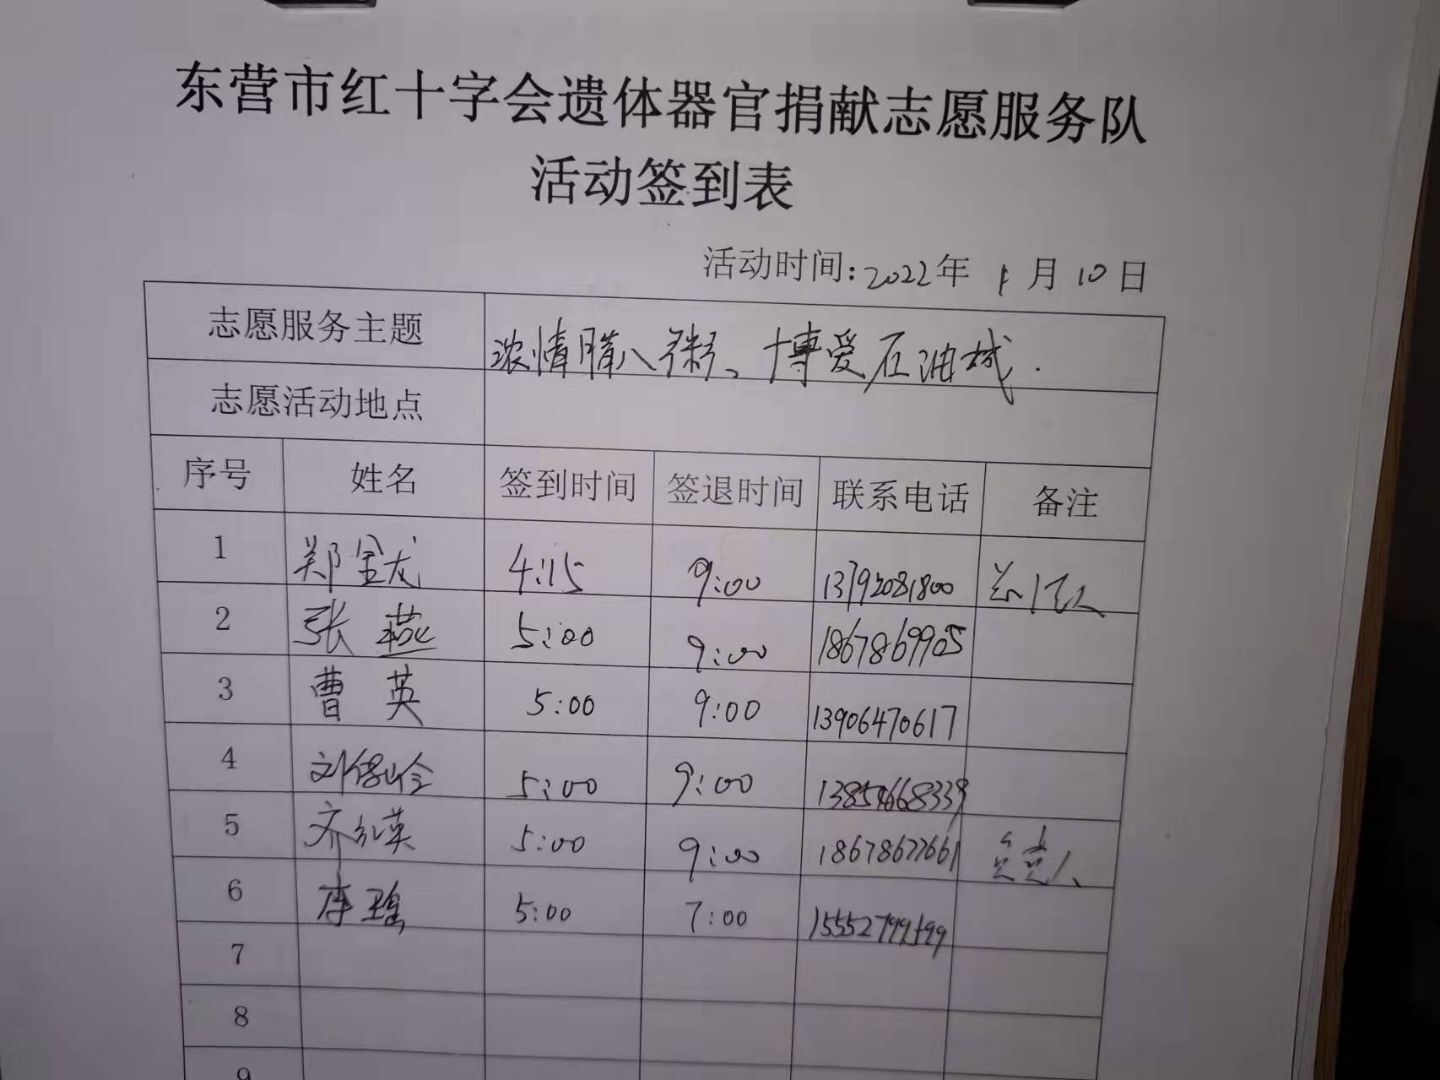 东营市红十字会遗体器官捐献志愿服务队
活动签到表
活动时间:2022年 1月10日
志愿服务主题 浓情腊八粥、博爱石油城.
志愿活动地点
序号 姓名 签到时间 签退时间 联系电话 备注
1 郑金龙 4:15 9:00 13792081800
2 张燕 5:00 9:00 1867869905
3 曹英 5:00 9:00 13906470617
4 刘 5:00 9:00 13854668339
5 齐红英 5:00 9:00 18678677661 负责人
6 李瑶 5:00 7:00
7
8
9